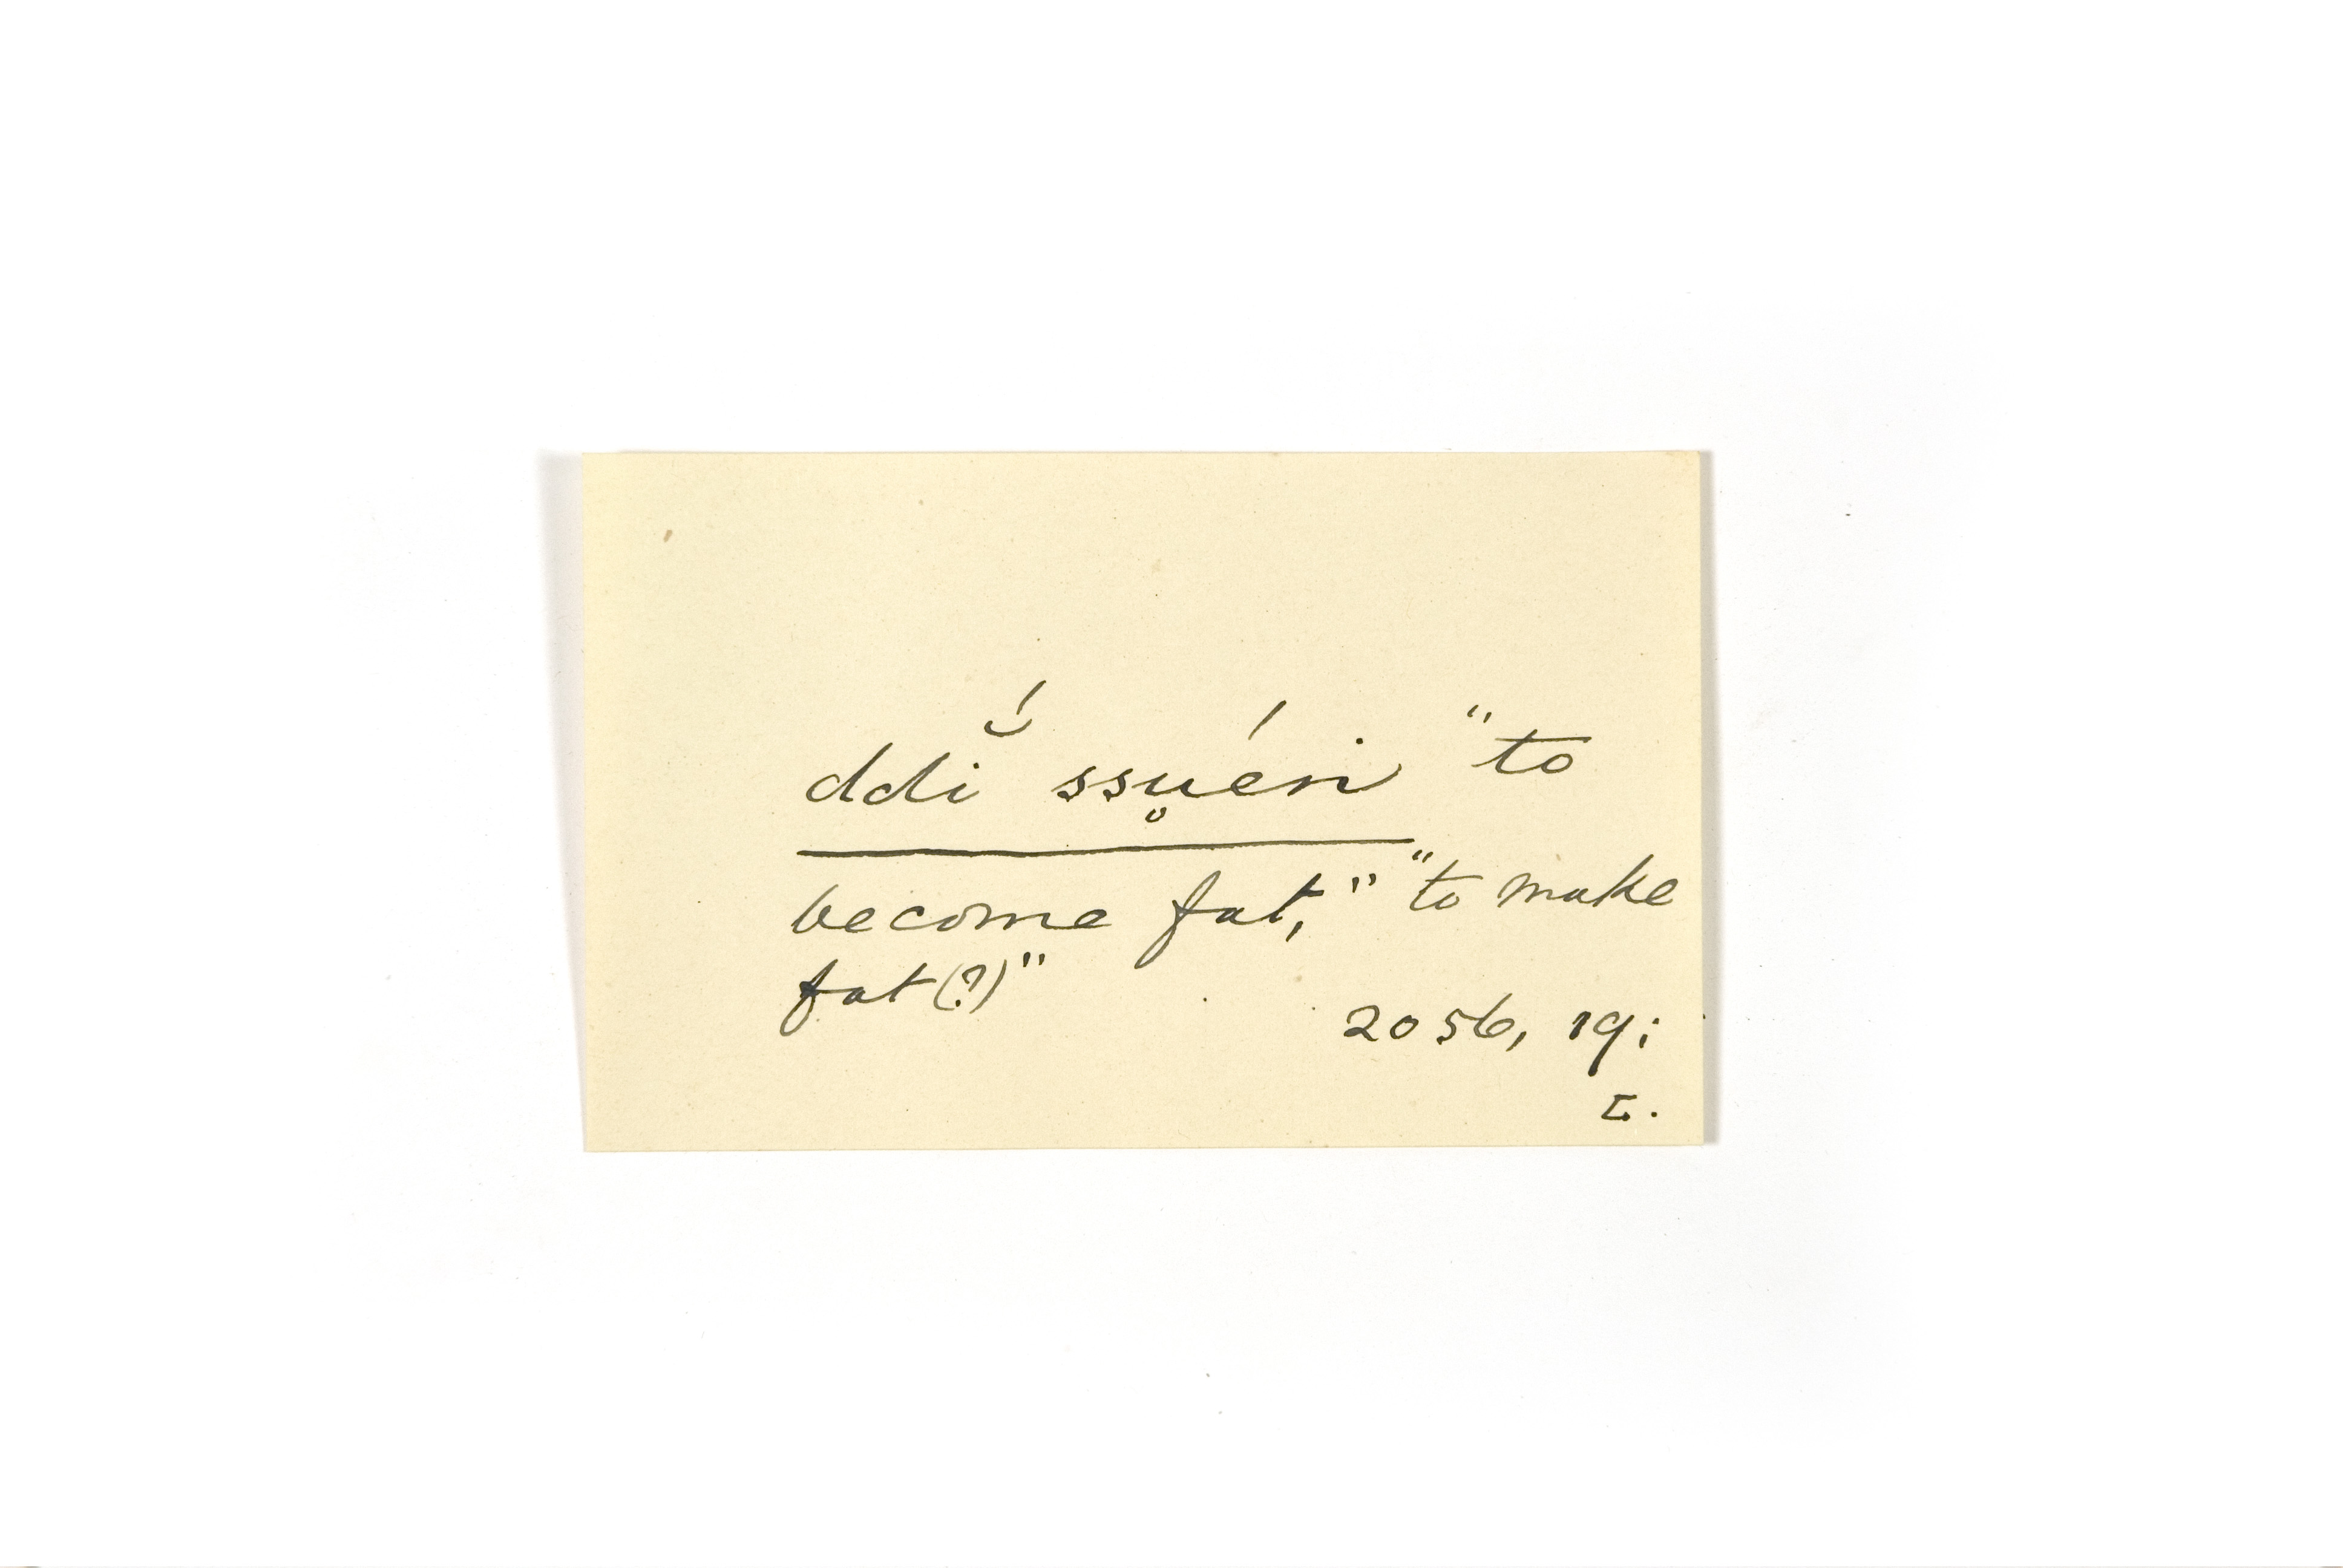 ddĭ́ ssu̥éni "to
become fat," "to make
fat(?)"
2056, 19;
I.